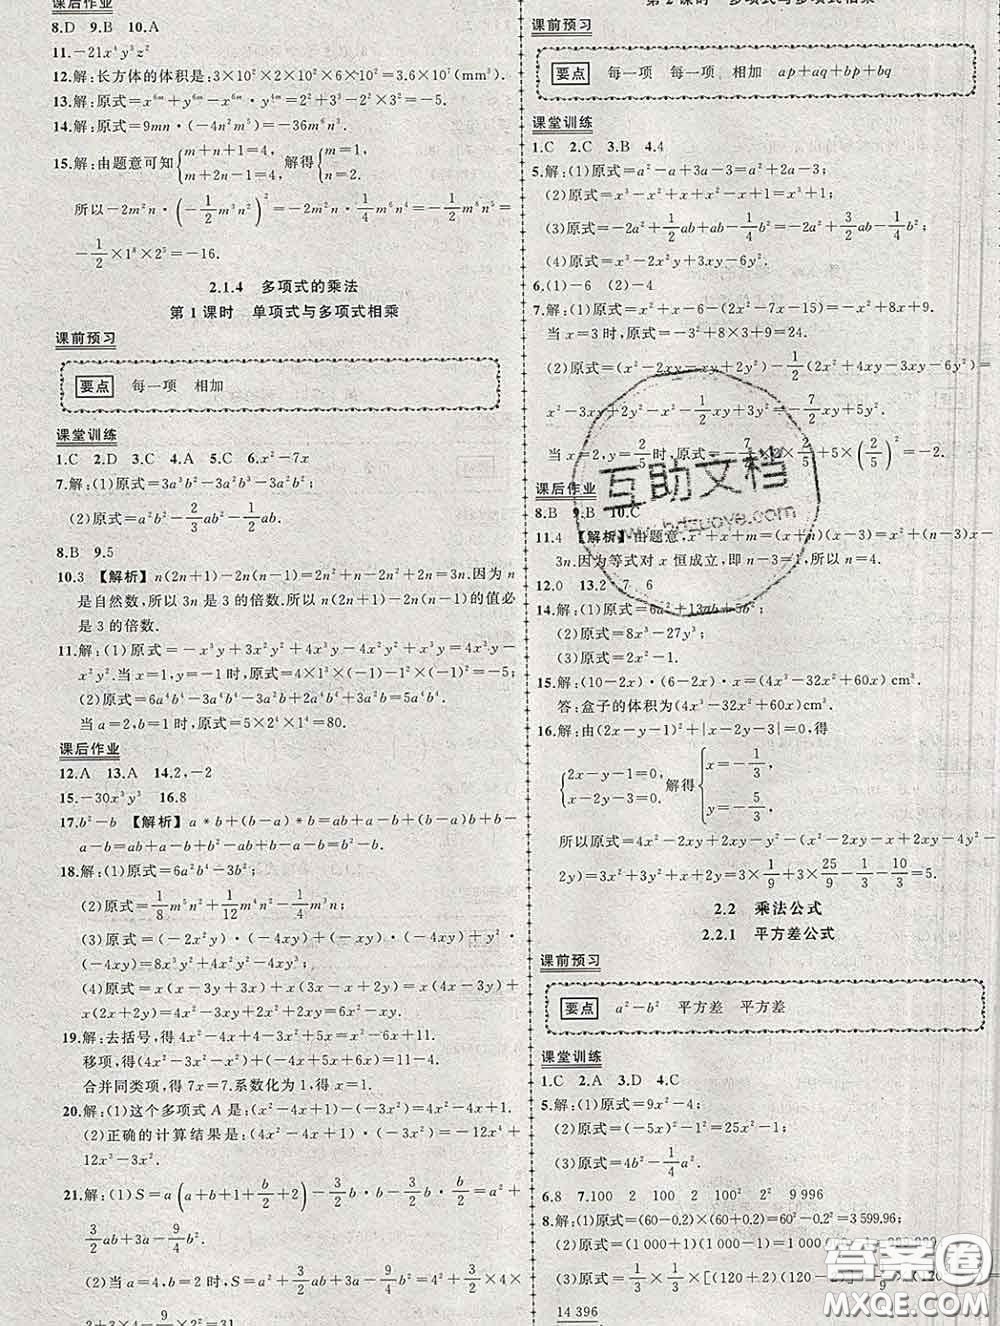 课后作业
8.D 9.B 10.A
11.-21x⁴y³z²
12.解:长方体的体积是:3×10²×2×10²×6×10²=3.6×10⁷(mm³).
13.解:原式=x⁶ᵐ+y⁶ᵐ-x⁶ᵐ·y⁴ᵐ=2²+3²-2²×3²=-5.
14.解:原式=9mn·(-4n²m⁵)=-36m⁶n³.
15.解:由题意可知{m+n+1=4, m+2n-1=4, 解得{m=1, n=2.
所以-2m²n·(-1/2 m³n²)²=-2m²n·1/4 m⁶n⁴=-1/2 m⁸n⁵=
-1/2×1⁸×2⁵=-16.
2.1.4 多项式的乘法
第1课时 单项式与多项式相乘
课前预习
要点 每一项 相加
课堂训练
1.C 2.D 3.C 4.A 5.C 6.x²-7x
7.解:(1)原式=3a³b²-3a²b³-3a²b²;
(2)原式=a²b²-2/3 ab²-1/2 ab.
8.B 9.5
10.3 【解析】n(2n+1)-2n(n-1)=2n²+n-2n²+2n=3n.因为n
是自然数,所以3n是3的倍数.所以n(2n+1)-2n(n-1)的值必
是3的倍数.
11.解:(1)原式=-x³y+3x²y²+4x³y-4x²y²+x³y=4x³y-
x²y².当x=1,y=-1时,原式=4×1³×(-1)-1²×(-1)²=-5;
(2)原式=6a⁴b⁴-3a⁴b⁴-3a⁴b⁴+5a⁴b⁴=5a⁴b⁴.
当a=2,b=1时,原式=5×2⁴×1⁴=80.
课后作业
12.A 13.A 14.2,-2
15.-30x³y³ 16.8
17.b²-b 【解析】a*b+(b-a)*b=ab+a-b+(b-a)b+b-
a-b=ab+a-b+b²-ab+b-a-b=b²-b.
18.解:(1)原式=6a²b⁴-3b²;
(2)原式=1/8 m⁵n²+1/12 m⁴n²-1/4 m³n;
(3)原式=(-2x²y)·(-4xy)+(-xy)·(-4xy)+y²·
(-4xy)=8x³y²+4x²y²-4xy³;
(4)原式=x(x²y+xy+3x)+x(3x²y-xy-3x)=x³y+
x²y+3x²+3x³y-x²y-3x²=4x³y.
19.解:去括号,得4x²-4x+4-3x²+5x=x²-6x+11.
移项,得(4x²-3x²-x²)+(-4x+5x+6x)=11-4.
合并同类项,得7x=7.系数化为1,得x=1.
20.解:(1)这个多项式A是:(x²-4x+1)-(-3x²)=4x²-4x+1.
(2)正确的计算结果是:(4x²-4x+1)·(-3x²)=-12x⁴+
12x³-3x².
21.解:(1)S=a(a+b+1+b/2+2)-3/2 b·b-3/2 b·b/2=a²+
3/2 ab+3a-9/4 b².
(2)当a=4,b=2时,S=a²+3/2 ab+3a-9/4 b²=4²+3/2×4×
2+3×4-9/4×2²=31.
第2课时 多项式与多项式相乘
课前预习
要点 每一项 每一项 相加 ap+aq+bp+bq
课堂训练
1.C 2.C 3.B 4.4
5.解:(1)原式=a²-a+3a-3=a²+2a-3;
(2)原式=x³-x²+x+x²-x+1=x³+1;
(3)原式=-2a²+1/2 ab+ab-1/4 b²=-2a²+3/2 ab-1/4 b²;
(4)原式=x³-2x²y+3xy-6y².
6.(1)-6 (2)4
当x=3时,原式=-3²+8×3+9=24.
课后作业
8.B 9.B 10.C
3n.因为等式对x恒成立,即n-3=1,所以n=4.
(2)原式=8x³-27y³;
(3)原式=2x²-1.
15.解:(10-2x)·(6-2x)·x=(4x³-32x²+60x)cm³.
答:盒子的体积为(4x³-32x²+60x)cm³.
16.解:由(2x-y-1)²+|x-2y-3|=0,得
{2x-y-1=0, x-2y-3=0. 解得{x=-1/3, y=-5/3.
所以原式=4x²-2xy+2xy-y²-(x²-2xy-x+2xy-4y²-
2y)=3x²+3y²+x+2y=3×1/9+3×25/9-1/3-10/3=5.
2.2 乘法公式
2.2.1 平方差公式
课前预习
要点 a²-b² 平方差 平方差
课堂训练
1.C 2.A 3.D 4.C
5.解:(1)原式=9x²-4;
(2)原式=(-5x)²-1²=25x²-1;
(3)原式=4b²-1/4 a².
6.8 7.100 2 100 2 100² 2² 9 996
8.解:(1)原式=(60-0.2)×(60+0.2)=60²-0.2²=3 599.96;
14 396
互助文档
www.hdzuoye.com
答案圈
MXQE.COM